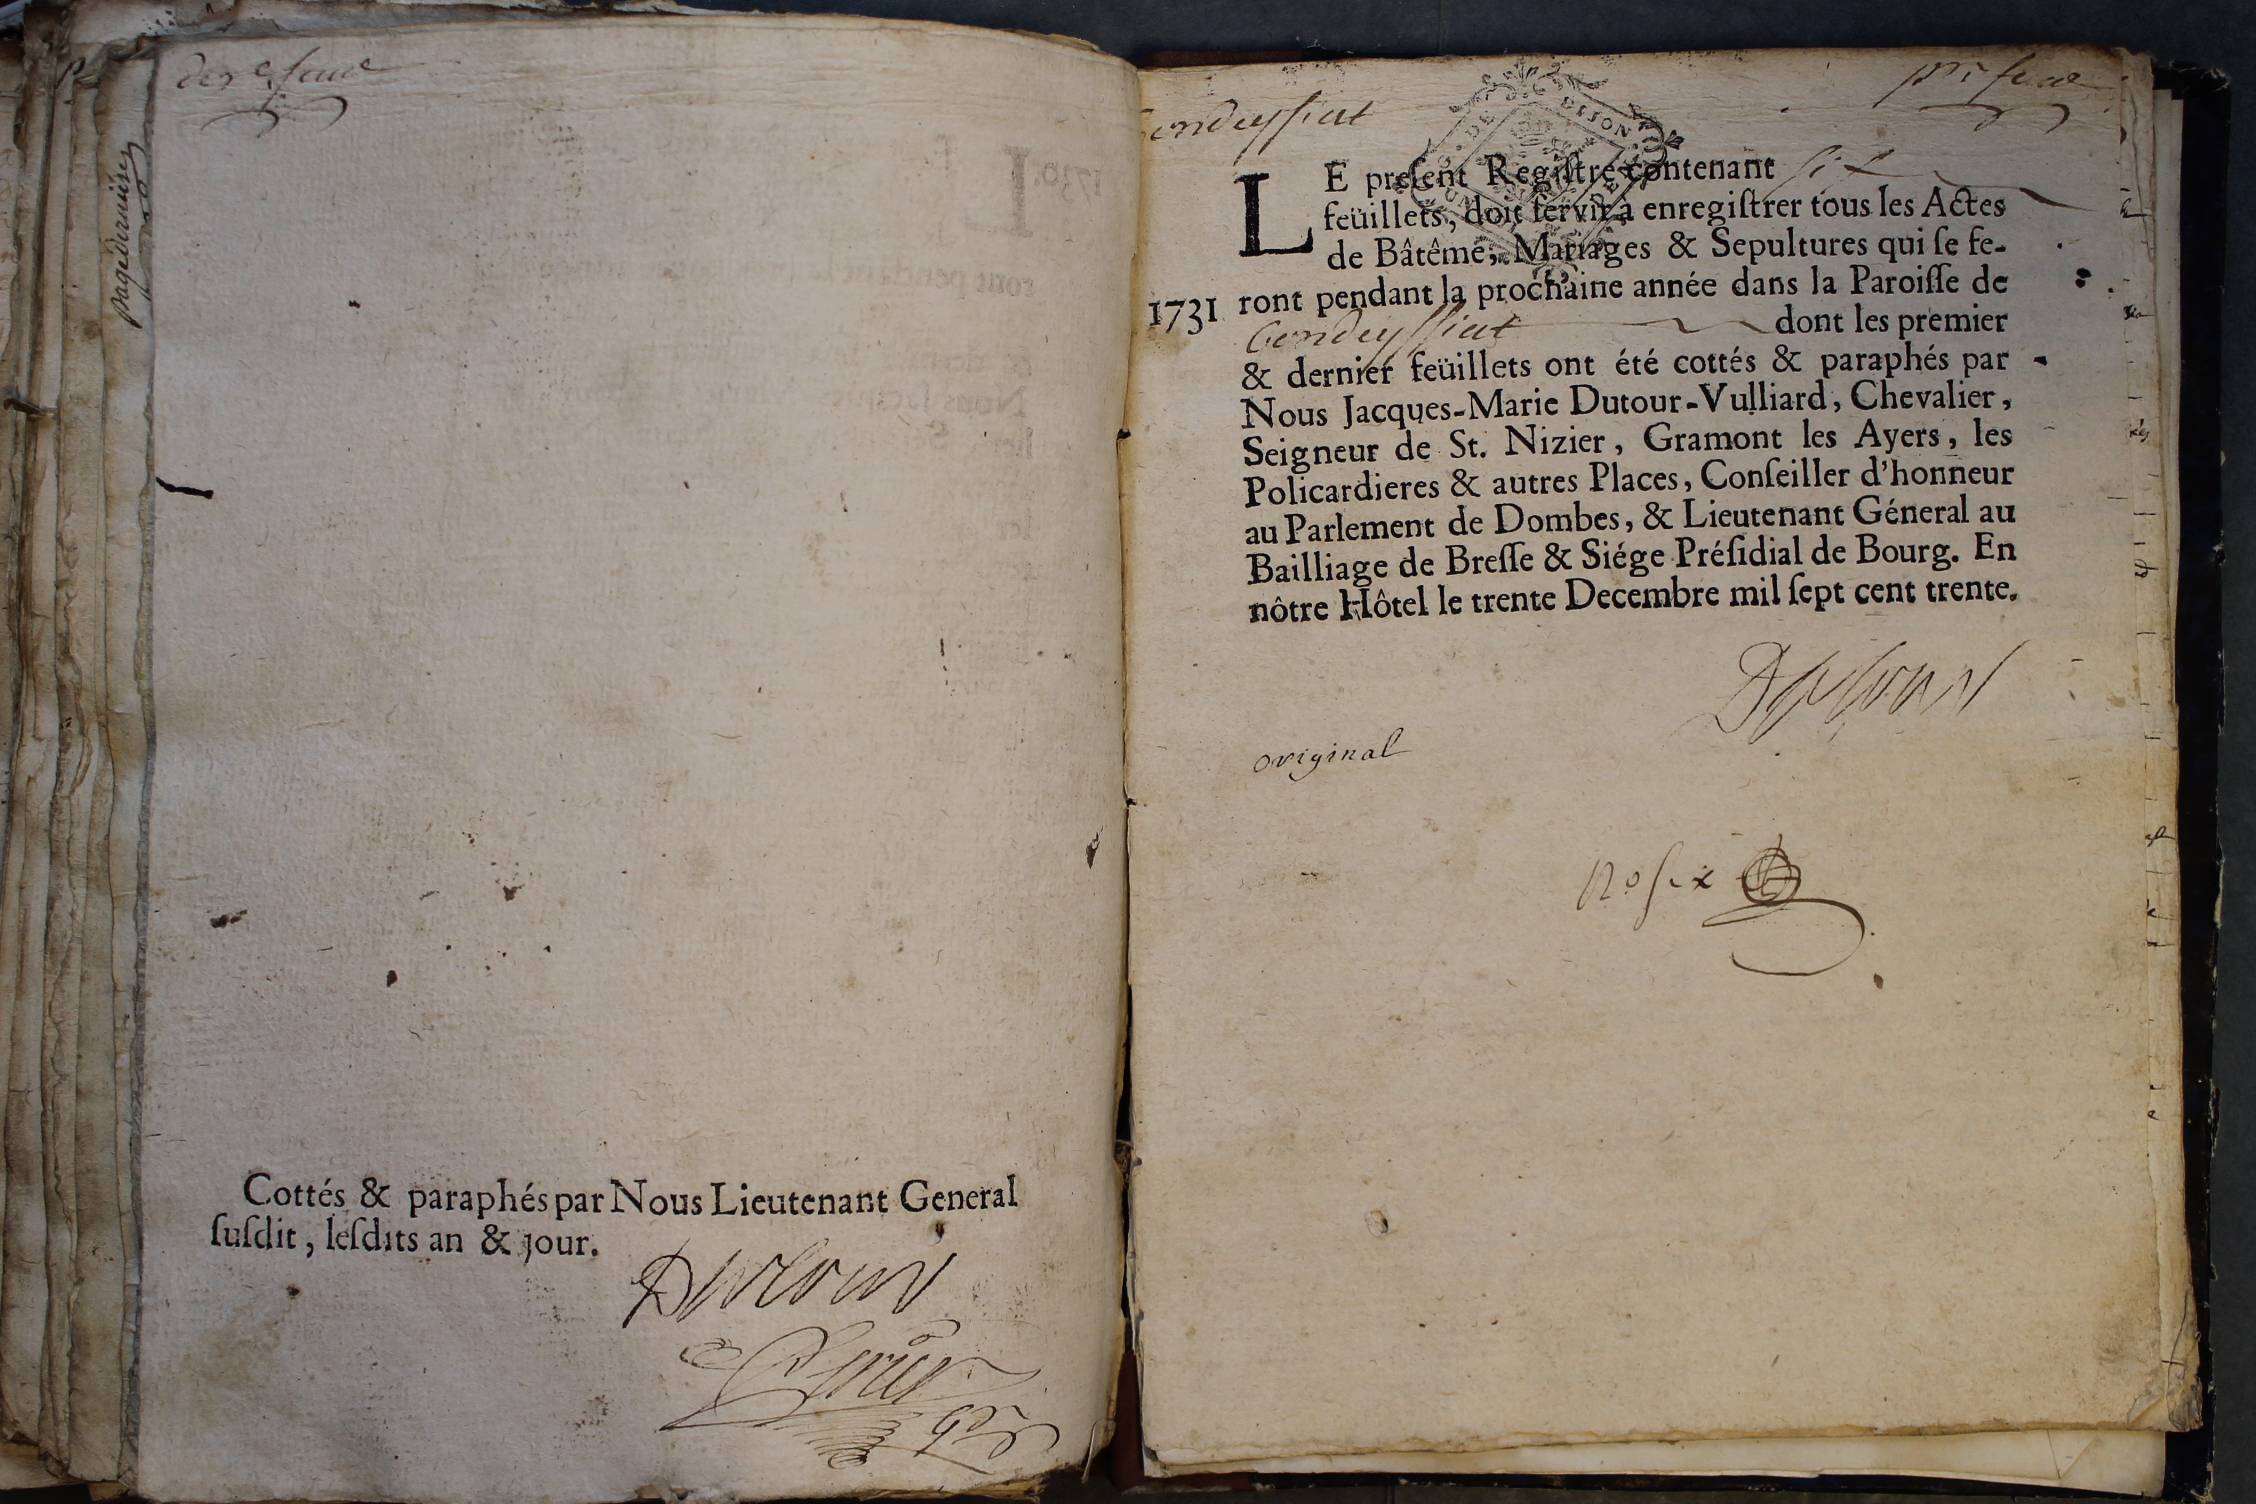 der.e feuile
page derniére
Cottés & paraphés par Nous Lieutenant General
ſuſdit, leſdits an & jour.
Dutour
Condeyssiat
pr. feuile
DE DIJON
LE preſent Regiſtre contenant six
feüillets, doit ſervir à enregiſtrer tous les Actes
de Bâtême, Mariages & Sepultures qui ſe fe-
1731 ront pendant la prochaine année dans la Paroiſſe de
Condeyssiat dont les premier
& dernier feüillets ont été cottés & paraphés par
Nous Jacques-Marie Dutour-Vulliard, Chevalier,
Seigneur de St. Nizier, Gramont les Ayers, les
Policardieres & autres Places, Conſeiller d'honneur
au Parlement de Dombes, & Lieutenant Géneral au
Bailliage de Breſſe & Siége Préſidial de Bourg. En
nôtre Hôtel le trente Decembre mil ſept cent trente.
Dutour
original
no six